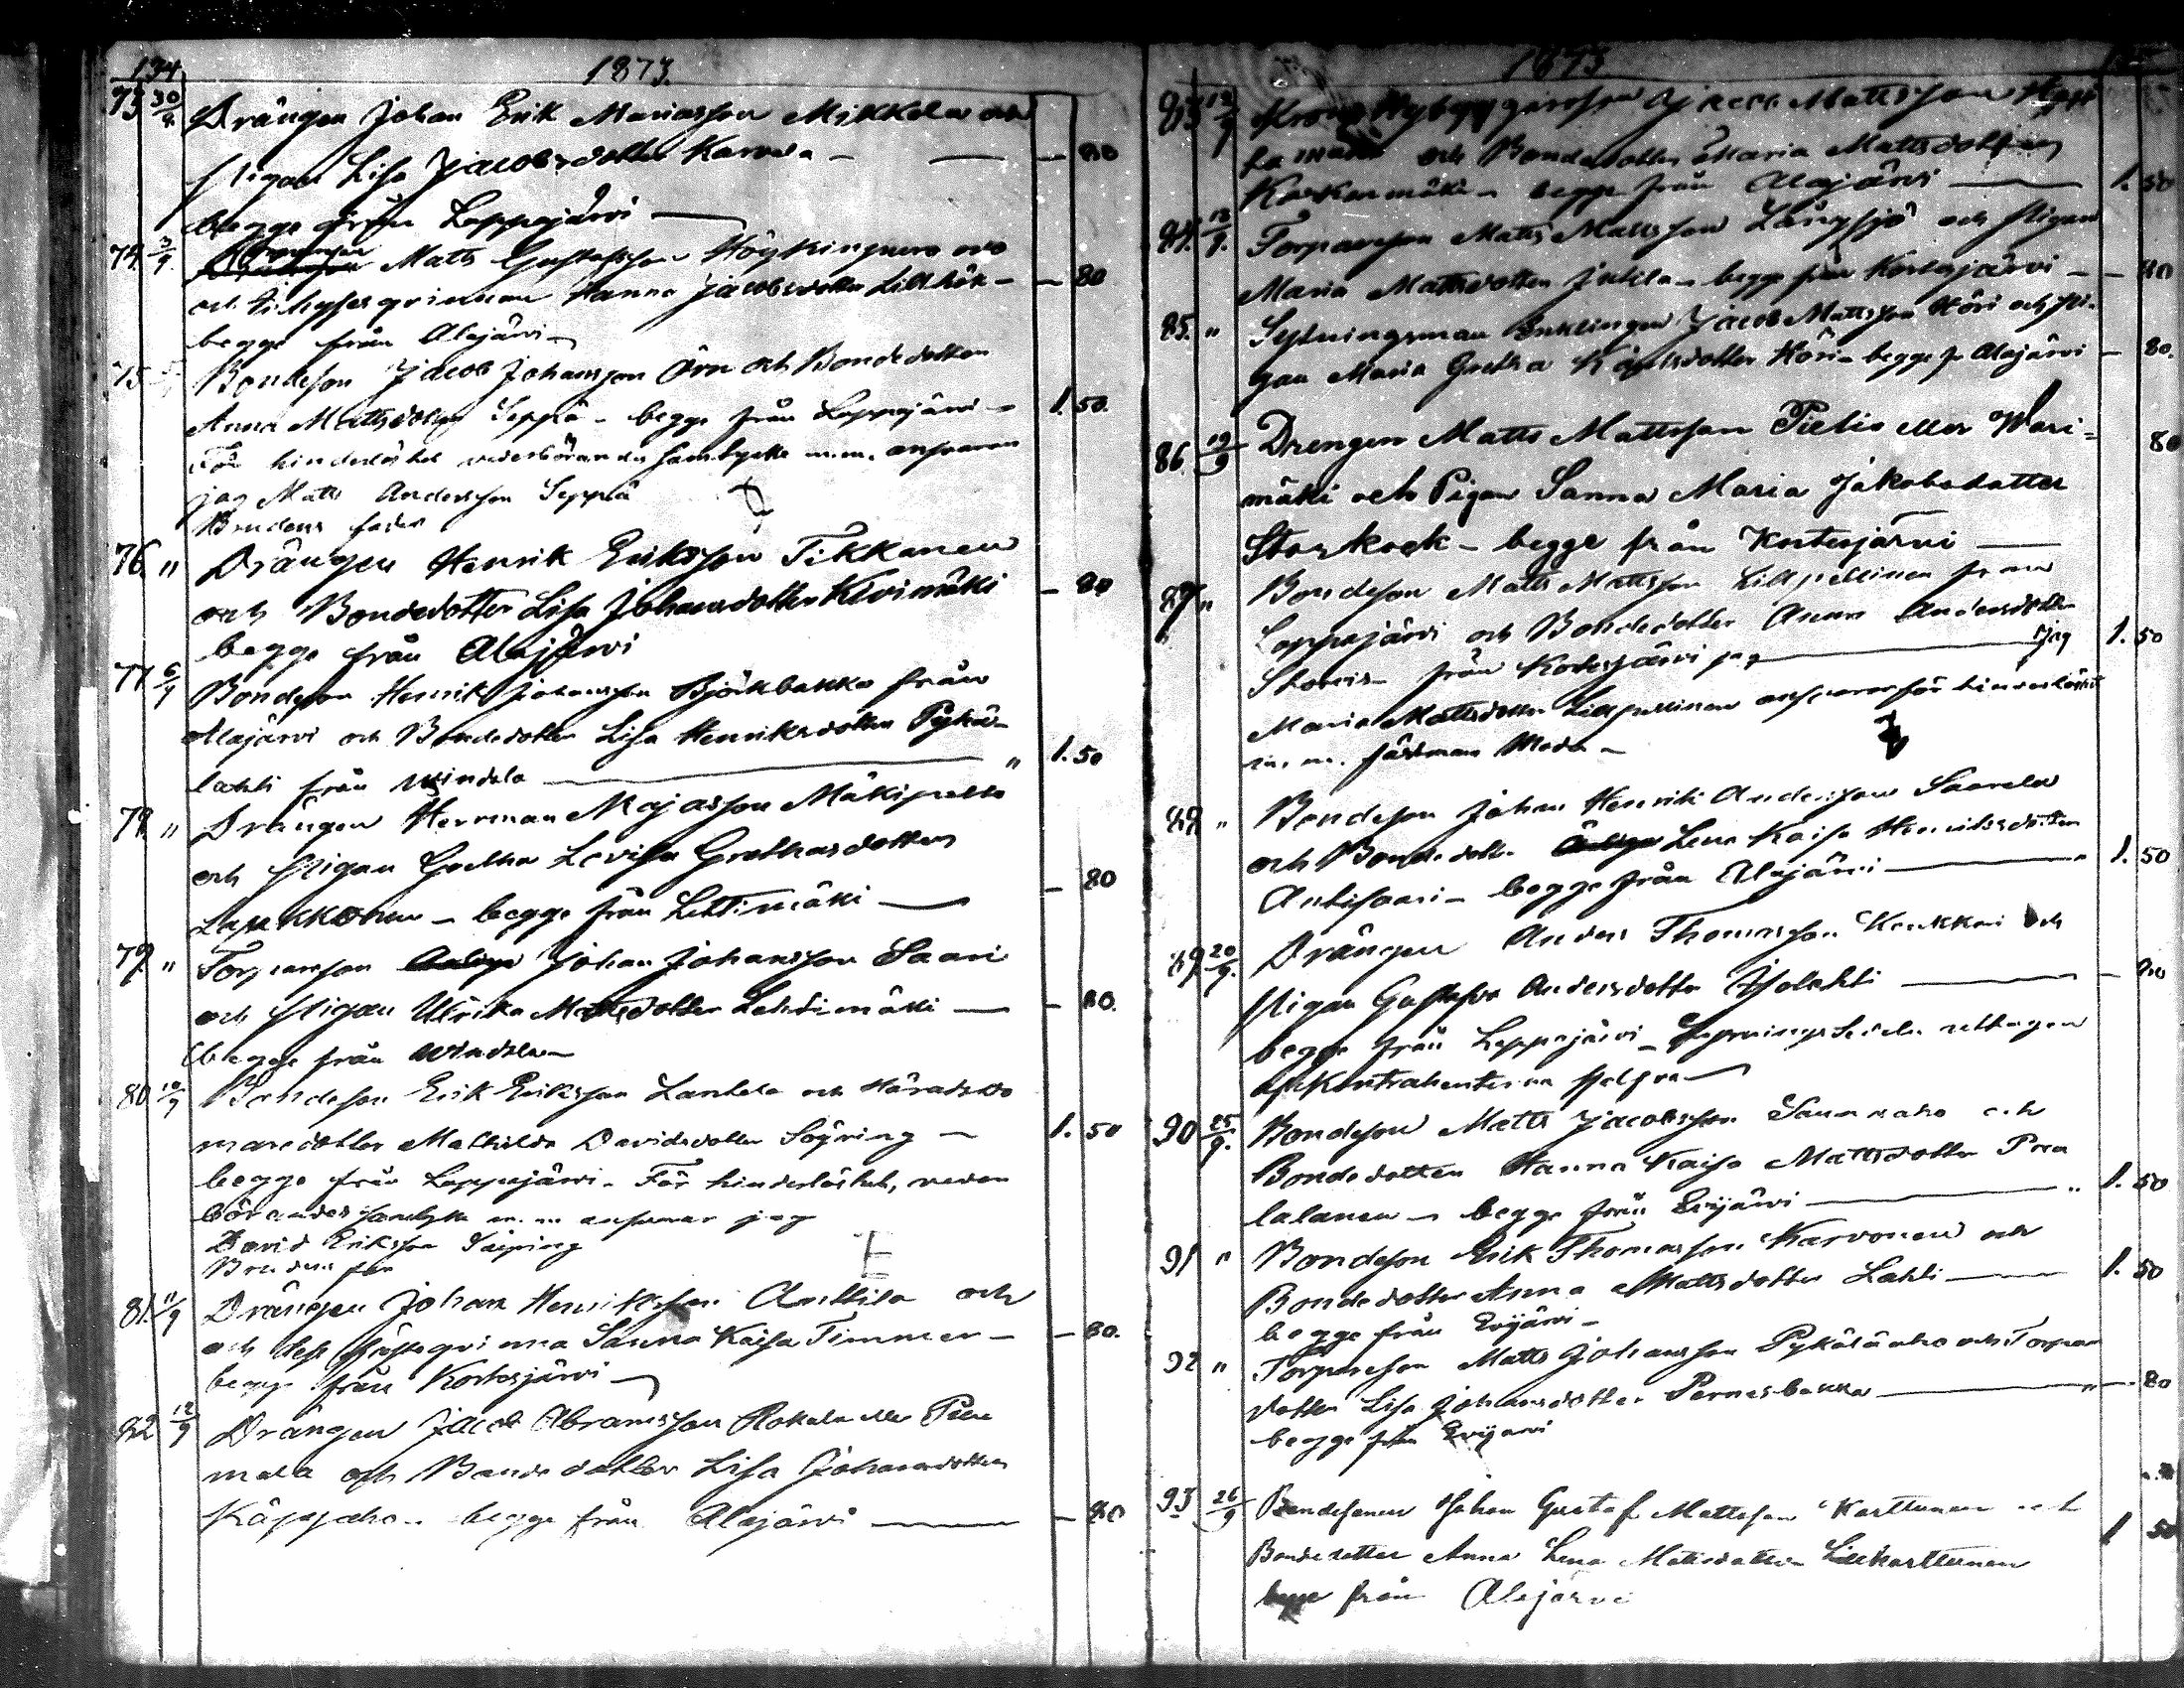 134
1873.
73 30/8 Drängen Johan Erik Mariasson Mikkela och
Pigan Lisa Jacobsdotter Karvala - — - 80
begge från Lappajärvi —
74. 3/9. Matts Gustafsson Högkingnero
och Hanna Jacobsdotter - - 80
begge från Alajärvi -
75 5/9 Bondeson Jacob Johansson Örn och Bondedotter
Anna Mattsdotter Seppä - begge från Lappajärvi - 1. 50.
För hinderlöshet vederbörandes samtycke m.m. ansvarar
jag Matts Andersson Seppä
Brudens fader
76. " Drängen Henrik Eriksson Tikkanen
och Bondedotter Lisa Johansdotter Kivimäki - 80
begge från Alajärvi
77 6/9 Bondeson Henrik Johansson Björkbakka från
Alajärvi och Bondedotter Lisa Henriksdotter Pykä-
lahti från Windala — " 1. 50
78. " Drängen Herrman Majasson Mäkipelto
och Pigan Gretha Lovisa Grethasdotter
- begge från Lehtimäki — - 80
79. " Torpareson Johan Johansson Saari
och Pigan Ulrika Mattsdotter Lehtimäki — - 80.
begge från Windala -
80. 10/9 Bondeson Erik Eriksson Lantela och Härads
maredotter Mathilda Davidsdotter - 1. 50
begge från Lappajärvi. För hinderlöshet, veder
börandes samtycke m.m. ansvarar jag
David Eriksson
Brudens far
81. 11/9 Drängen Johan Henriksson Anttila och
och dess fästeqvinna Sanna Kaisa Timmer - - 80.
begge från Kortesjärvi -
82 12/9 Drängen Jacob Abramsson Rokala eller
och Bondedotter Lisa Johansdotter
Käppaho - begge från Alajärvi — - 80
1873
83 12/9 Jacob Mattsson
och Bondedotter Maria Mattsdotter
Koskenmäki - begge från Alajärvi — 1. 50
84. 12/9. Torpareson Matts Mattsson Långsjö och Pigan
Maria Mattsdotter Jukkla - begge från Kortesjärvi - - 80
85. " Sytningsman Enklingen Jacob Mattsson Höri och Pi-
gan Maria Gretha Höri - begge fr Alajärvi - 80.
86. 19/9 Drengen Matts Mattsson Pielis eller Wari=
mäki och Pigan Sanna Maria Jakobsdotter 80
Storkock - begge från Kortesjärvi —
87 " Bondeson Matts Mattsson Lillpellinen från
Lappajärvi och Bondedotter Anna Andersdotter
från Kortesjärvi — Jag 1. 50
Maria Mattsdotter Lillpellinen ansvarar för hinderlöshet
m. m. Moder -
88 " Bondeson Johan Henrik Andersson Saarela
och Bondedotter Lena Kaisa Henriksdotter
Antisaari - begge från Alajärvi — " 1. 50
89. 20/9. Drängen Anders Thomasson Kankkari och
Pigan Gustafva Andersdotter Isolahti — - 80
begge från Lappajärvi - uttagen
af kontrahenterna sjelfva —
90 25/9. Bondeson Matts Jacobsson Saunaaho och
Bondedotter Hanna Kaisa Mattsdotter
lalanen - begge från Evijärvi — " 1. 50
91 " Bondeson Erik Thomasson Karvonen och
Bondedotter Anna Mattsdotter Lahti — 1. 50
begge från Evijärvi -
92 " Torpareson Matts Johansson Pykälänaho och Torpar
dotter Lisa Johansdotter Pernesbacka — " - 80
begge från Evijärvi
93 26/9 Bondesonen Johan Gustaf Mattsson Karttunen och
Bondedotter Anna Lena Mattsdotter Lillkarttunen 1 50
begge från Alajärvi